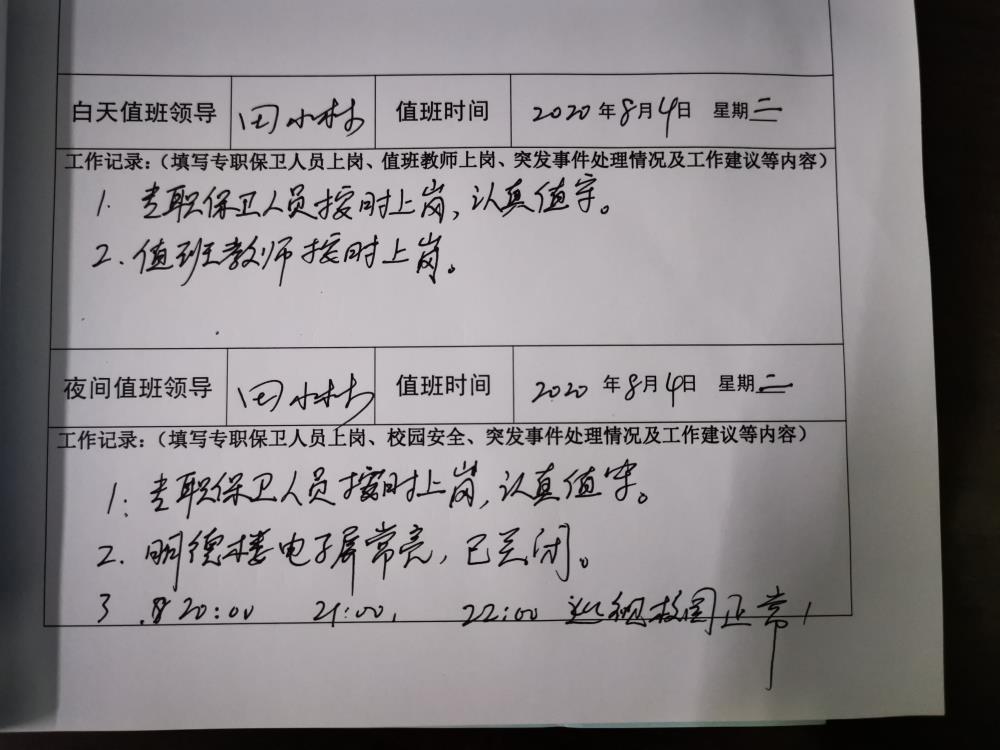 白天值班领导 田小林 值班时间 2020年8月4日 星期二
工作记录:(填写专职保卫人员上岗、值班教师上岗、突发事件处理情况及工作建议等内容)
1. 专职保卫人员按时上岗,认真值守。
2. 值班教师按时上岗。
夜间值班领导 田小林 值班时间 2020年8月4日 星期二
工作记录:(填写专职保卫人员上岗、校园安全、突发事件处理情况及工作建议等内容)
1. 专职保卫人员按时上岗,认真值守。
2. 明德楼电子屏常亮,已关闭。
3. 20:00 21:00, 22:00 巡视校园正常!